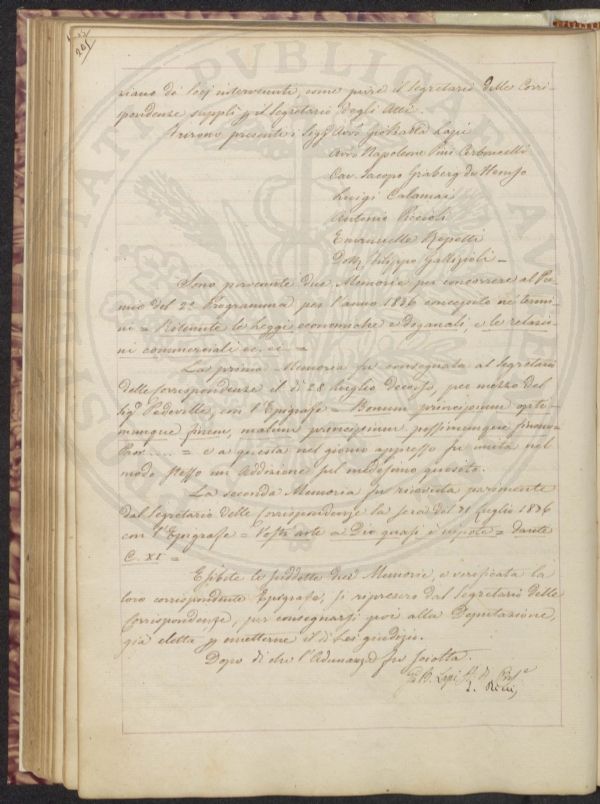 261
ziano da lui intervenute, come pure il Segretario delle Corri-
pondenze supplì p il Segretario degli Atti.
Furono presenti i Sigg. Avvo Gio: Batta Lapi
Avvo Napoleone Pini Corboncelli
Cav. Jacopo Graberg da Hemso
Luigi Calamai
Antonio Piccioli
Emanuelle Repetti
Dott. Filippo Gallizioli =
Sono pervenute due Memorie per concorrere al Pre
mio del 2o Programma per l'anno 1836 concepito ne' termi-
ni = Ritenute le Leggi economiche e doganali, e le relazio-
ni commerciali ec. ec. =
La prima Memoria fu consegnata al Segretario
delle Corrispondenze il dì 28 luglio decorso, per mezzo del
Sig. Padeville, con l'Epigrafe = Bonum principium opti-
mumque finem, malum principium pessimumque finem =
.... = e a questa nel giorno appresso fu unita nel
modo stesso un'Addizione sul medesimo quesito.
La seconda Memoria fu ricevuta parimente
dal Segretario delle Corrispondenze la sera del 31 luglio 1836
con l'Epigrafe = Vostr'arte a Dio quasi è nipote = Dante
C. XI =
Esibite le suddette due Memorie, e verificata la
loro corrispondente Epigrafe, si ripresero dal Segretario delle
Corrispondenze, per consegnarsi poi alla Deputazione,
già eletta p emetterne il di Lei giudizio.
Dopo di che l'Adunanza fu sciolta.
G. B. Lapi
L. Ricci